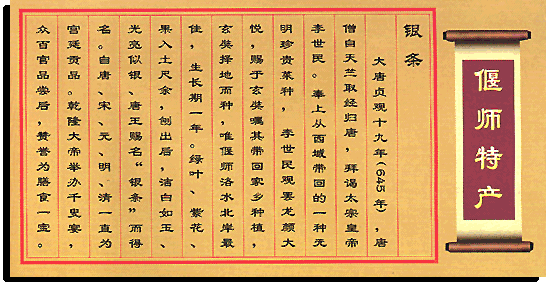 偃师特产
银条
大唐贞观十九年(645年)，唐
僧自天竺取经归唐，拜谒太宗皇帝
李世民。奉上从西域带回的一种无
明珍贵菜种，李世民观罢龙颜大
悦，赐于玄奘嘱其带回家乡种植，
玄奘择地而种，唯偃师洛水北岸最
佳，生长期一年。绿叶、紫花、
果入土尺余，刨出后，洁白如玉、
光亮似银、唐王赐名“银条”而得
名。自唐、宋、元、明、清一直为
宫廷贡品。乾隆大帝举办千叟宴，
众百官品尝后，赞誉为膳食一宝。